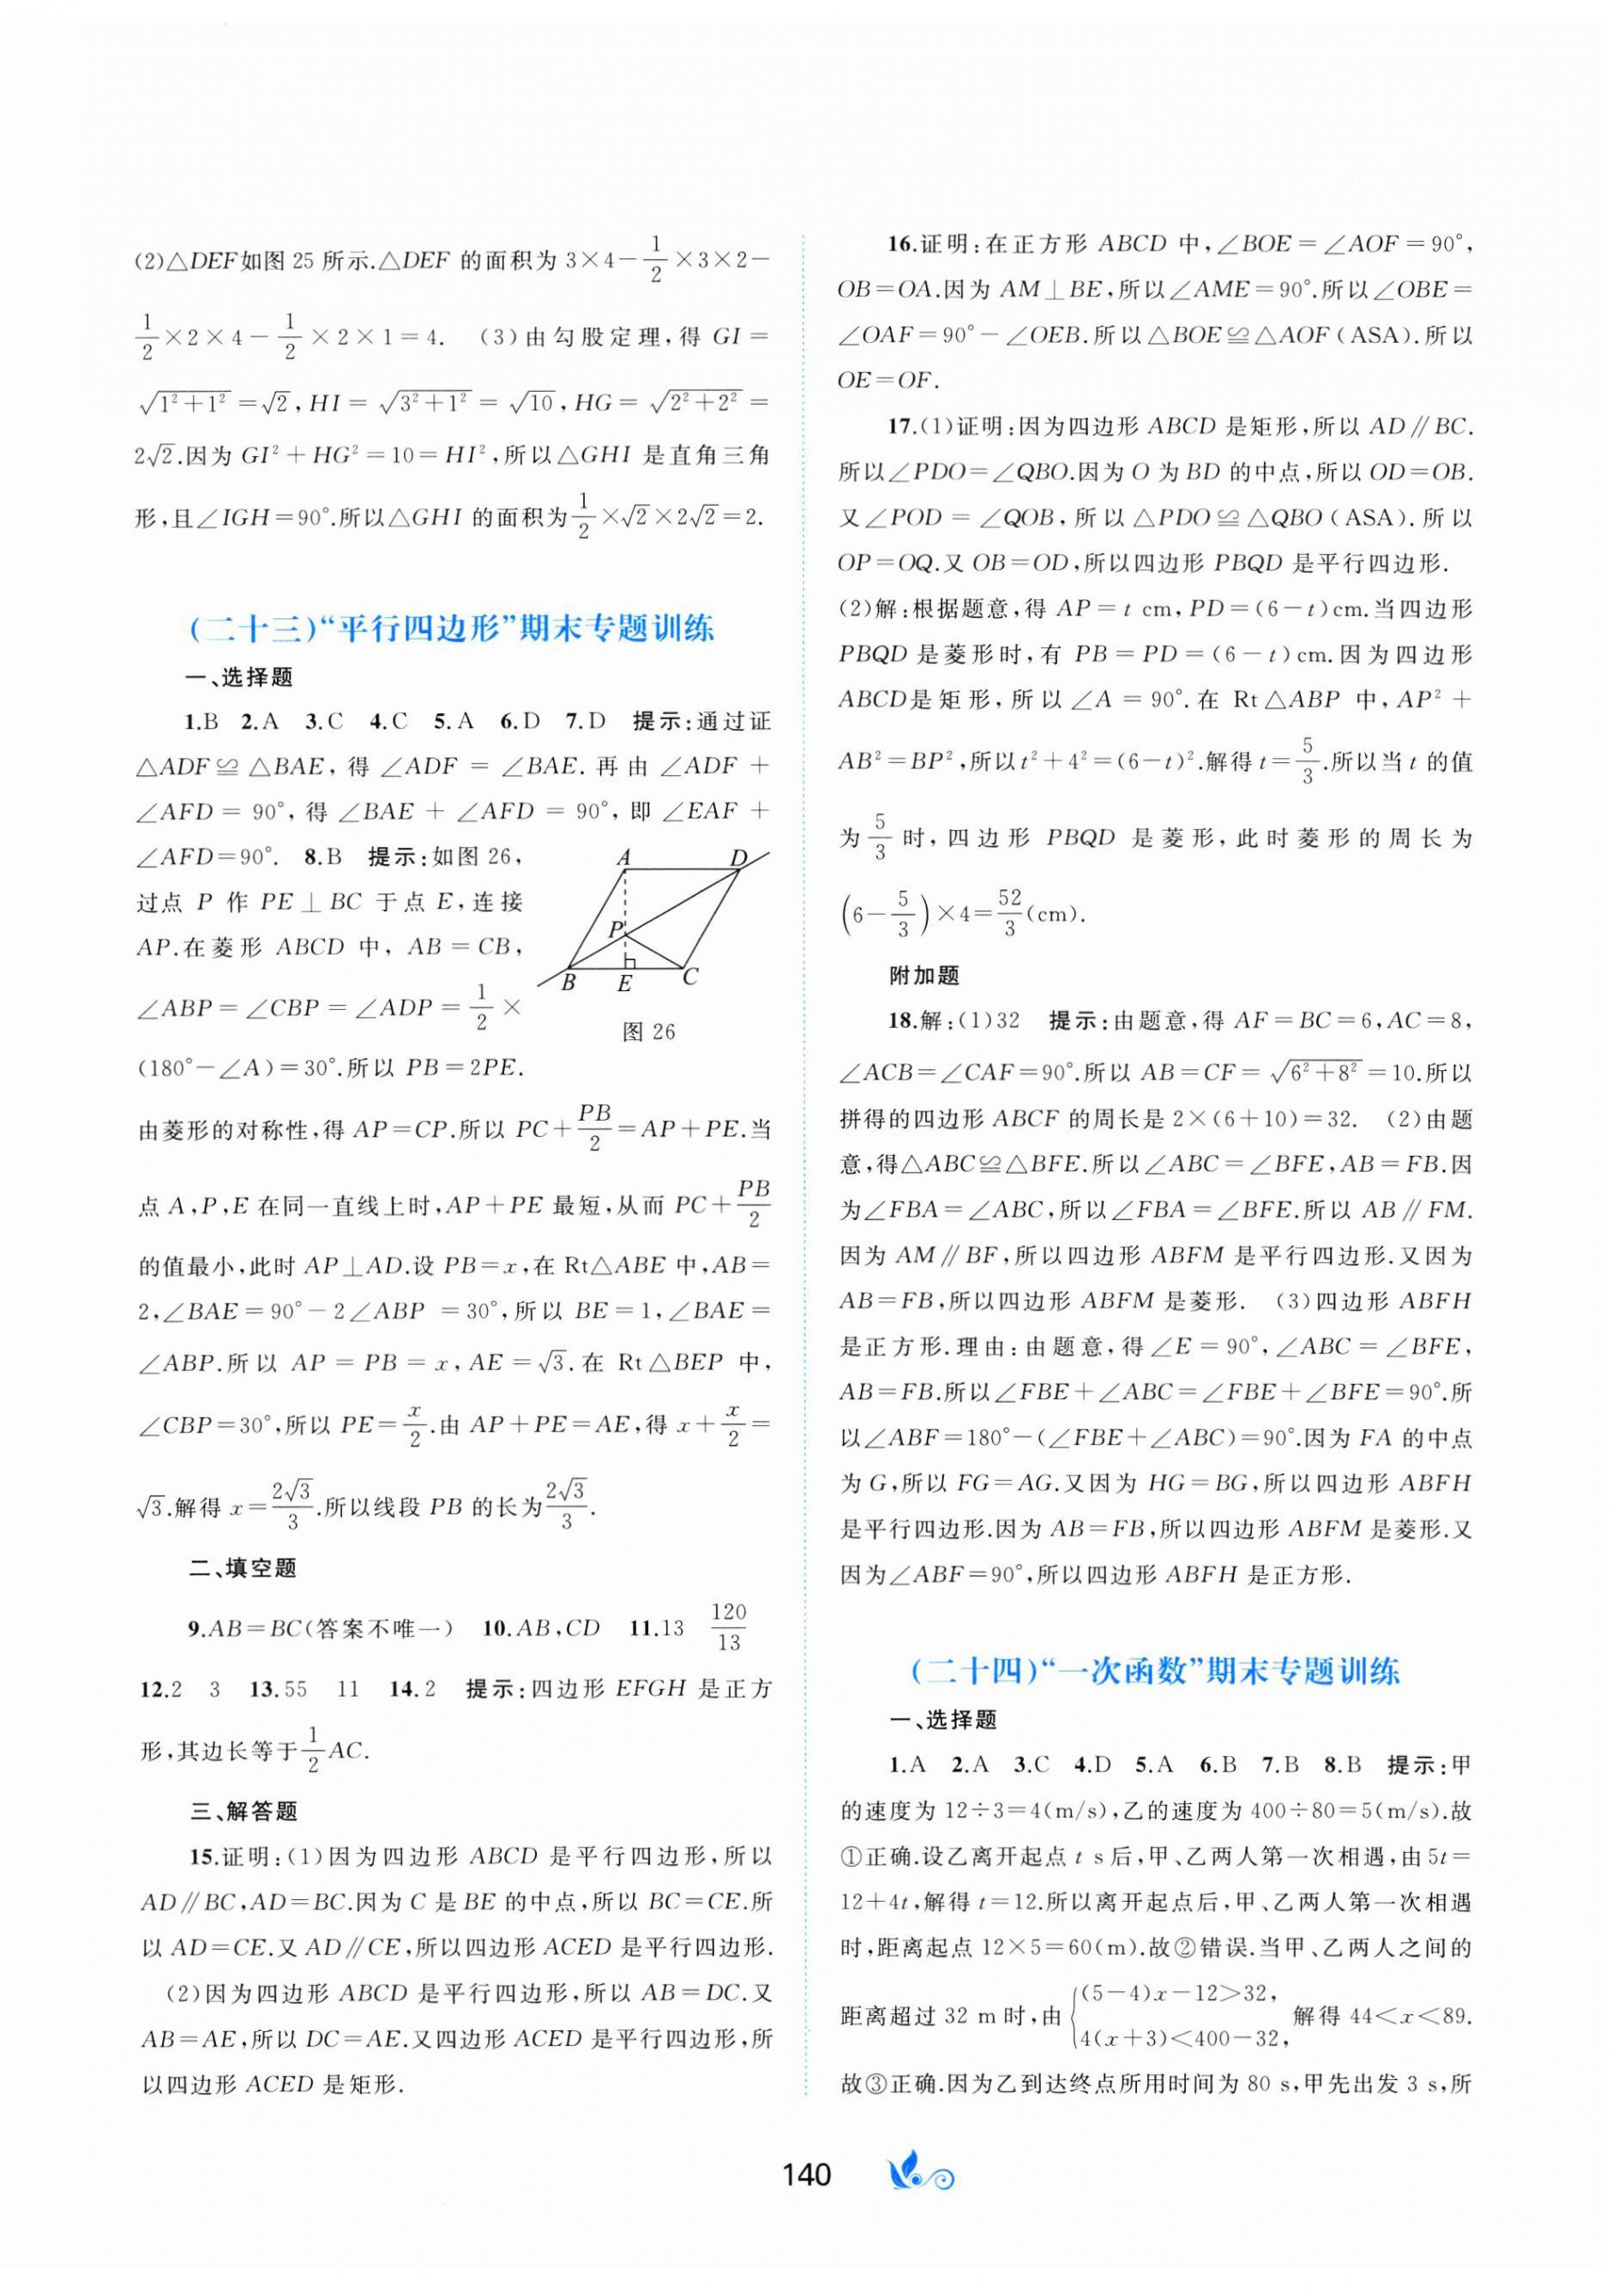 (2)△DEF如图 25 所示.△DEF 的面积为 3×4−1/2×3×2−
1/2×2×4−1/2×2×1=4. (3)由勾股定理,得 GI=
√(1²+1²)=√2,HI=√(3²+1²)=√10,HG=√(2²+2²)=
2√2.因为 GI²+HG²=10=HI²,所以△GHI 是直角三角
形,且∠IGH=90°.所以△GHI 的面积为1/2×√2×2√2=2.
(二十三)“平行四边形”期末专题训练
一、选择题
1.B 2.A 3.C 4.C 5.A 6.D 7.D 提示:通过证
△ADF≌△BAE,得∠ADF=∠BAE.再由∠ADF+
∠AFD=90°,得∠BAE+∠AFD=90°,即∠EAF+
∠AFD=90°. 8.B 提示:如图 26,
过点 P 作 PE⊥BC 于点 E,连接
AP.在菱形 ABCD 中,AB=CB,
∠ABP=∠CBP=∠ADP=1/2×
(180°−∠A)=30°.所以 PB=2PE.
A
D
P
B
E
C
图 26
由菱形的对称性,得 AP=CP.所以 PC+PB/2=AP+PE.当
点 A,P,E 在同一直线上时,AP+PE 最短,从而 PC+PB/2
的值最小,此时 AP⊥AD.设 PB=x,在 Rt△ABE 中,AB=
2,∠BAE=90°−2∠ABP =30°,所以 BE=1,∠BAE=
∠ABP.所以 AP=PB=x,AE=√3.在 Rt△BEP 中,
∠CBP=30°,所以 PE=x/2.由 AP+PE=AE,得 x+x/2=
√3.解得 x=2√3/3.所以线段 PB 的长为2√3/3.
二、填空题
9.AB=BC(答案不唯一) 10.AB,CD 11.13 120/13
12.2 3 13.55 11 14.2 提示:四边形 EFGH 是正方
形,其边长等于1/2AC.
三、解答题
15.证明:(1)因为四边形 ABCD 是平行四边形,所以
AD∥BC,AD=BC.因为 C 是 BE 的中点,所以 BC=CE.所
以 AD=CE.又 AD∥CE,所以四边形 ACED 是平行四边形.
(2)因为四边形 ABCD 是平行四边形,所以 AB=DC.又
AB=AE,所以 DC=AE.又四边形 ACED 是平行四边形,所
以四边形 ACED 是矩形.
16.证明:在正方形 ABCD 中,∠BOE=∠AOF=90°,
OB=OA.因为 AM⊥BE,所以∠AME=90°.所以∠OBE=
∠OAF=90°−∠OEB.所以△BOE≌△AOF(ASA).所以
OE=OF.
17.(1)证明:因为四边形 ABCD 是矩形,所以 AD∥BC.
所以∠PDO=∠QBO.因为 O 为 BD 的中点,所以 OD=OB.
又∠POD=∠QOB,所以△PDO≌△QBO(ASA).所以
OP=OQ.又 OB=OD,所以四边形 PBQD 是平行四边形.
(2)解:根据题意,得 AP=t cm,PD=(6−t)cm.当四边形
PBQD 是菱形时,有 PB=PD=(6−t)cm.因为四边形
ABCD是矩形,所以∠A=90°.在 Rt△ABP 中,AP²+
AB²=BP²,所以t²+4²=(6−t)².解得t=5/3.所以当t 的值
为5/3时,四边形 PBQD 是菱形,此时菱形的周长为
(6−5/3)×4=52/3(cm).
附加题
18.解:(1)32 提示:由题意,得 AF=BC=6,AC=8,
∠ACB=∠CAF=90°.所以 AB=CF=√(6²+8²)=10.所以
拼得的四边形 ABCF 的周长是 2×(6+10)=32. (2)由题
意,得△ABC≌△BFE.所以∠ABC=∠BFE,AB=FB.因
为∠FBA=∠ABC,所以∠FBA=∠BFE.所以 AB∥FM.
因为 AM∥BF,所以四边形 ABFM 是平行四边形.又因为
AB=FB,所以四边形 ABFM 是菱形. (3)四边形 ABFH
是正方形.理由:由题意,得∠E=90°,∠ABC=∠BFE,
AB=FB.所以∠FBE+∠ABC=∠FBE+∠BFE=90°.所
以∠ABF=180°−(∠FBE+∠ABC)=90°.因为 FA 的中点
为 G,所以 FG=AG.又因为 HG=BG,所以四边形 ABFH
是平行四边形.因为 AB=FB,所以四边形 ABFM 是菱形.又
因为∠ABF=90°,所以四边形 ABFH 是正方形.
(二十四)“一次函数”期末专题训练
一、选择题
1.A 2.A 3.C 4.D 5.A 6.B 7.B 8.B 提示:甲
的速度为 12÷3=4(m/s),乙的速度为 400÷80=5(m/s).故
①正确.设乙离开起点 t s 后,甲、乙两人第一次相遇,由 5t=
12+4t,解得 t=12.所以离开起点后,甲、乙两人第一次相遇
时,距离起点 12×5=60(m).故②错误.当甲、乙两人之间的
距离超过 32 m 时,由{(5−4)x−12>32, 4(x+3)<400−32, 解得 44<x<89.
故③正确.因为乙到达终点所用时间为 80 s,甲先出发 3 s,所
140